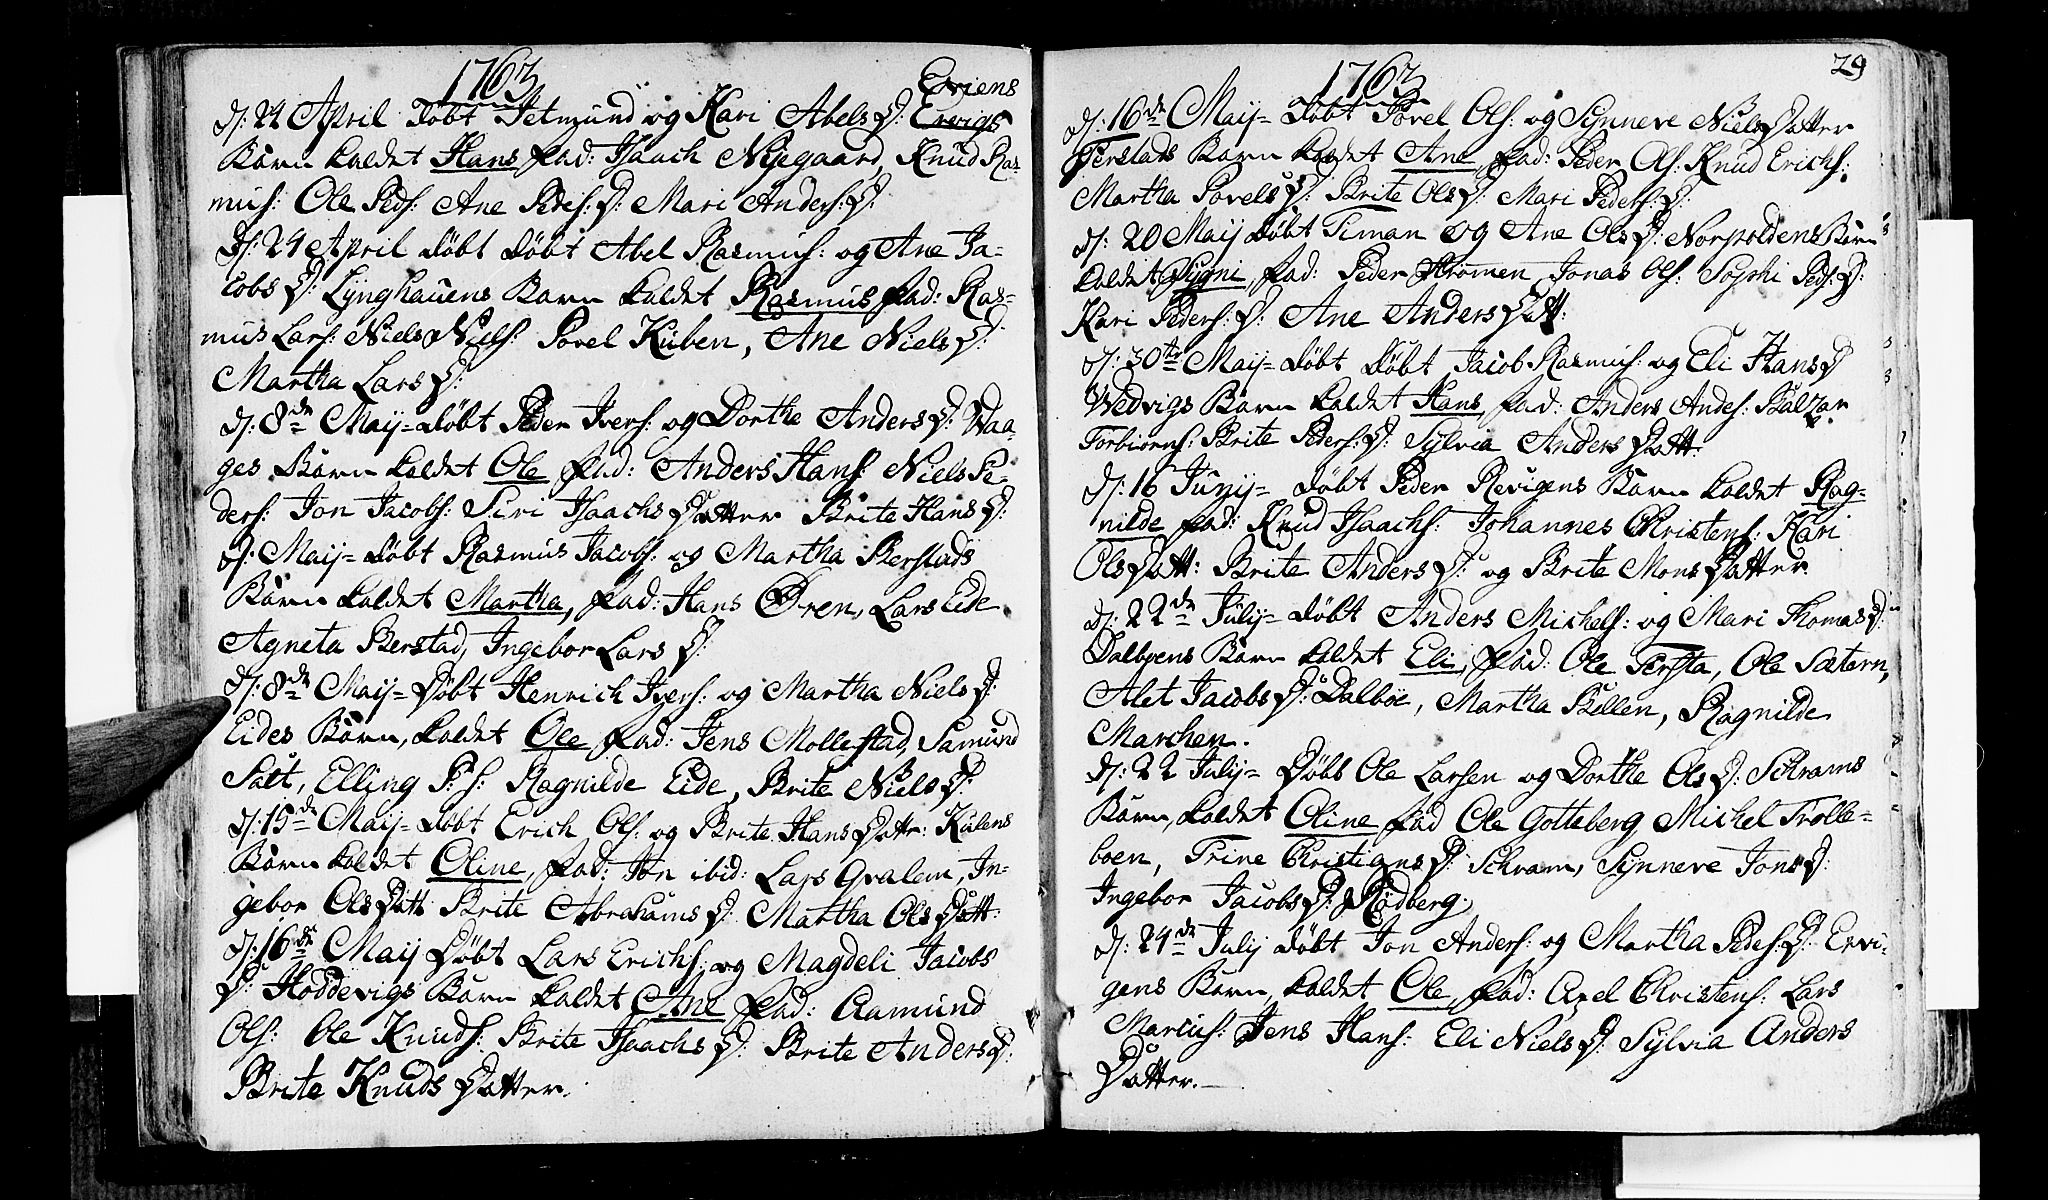 1763
Eriens
d: 24 April døbt Jetmund og Kari Abels D: Ervigs
Barn kaldet Hans, fad: Isaach Nygaard, Knud Ras-
mus: Ole Peds: Ane Peders: D: Mari Anders: D:
d: 24 April døbt døbt Abel Rasmus: og Ane Ja-
cobs D: Lynghauens Barn kaldet Rasmus fad: Ras-
mus Lars: Niels Niels: Povel Kuben, Ane Niels D:
Martha Lars D:
d: 8de Maij døbt Peder Ivers: og Dorthe Anders D: Waa-
ges Barn kaldet Ole fad: Anders Hans: Niels Pe-
ders: Jon Jacobs: Siri Isaachs Datter Brite Hans D:
d: Maij døbt Rasmus Jacobs: og Martha Berstads
Barn kaldet Martha, fad: Hans Øren, Lars Eide
Agneta Berstad, Ingebor Lars D:
d: 8de Maij Døbt Henrich Ivers: og Martha Niels D:
Eides Barn, kaldet Ole fad: Jens Mollestad, Samund
Salt, Elling P: s: Ragnilde Eide, Brite Niels D:
d: 15de Maij døbt Erich Ols: og Brite Hans Datr: Kulens
Barn kaldet Oline, fad: Jon ibid: Lars Qvalem, In-
gebor Ols Datt: Brite Abrahams D: Martha Ols Datt:
d: 16de Maij Døbt Lars Erichs: og Magdeli Jacobs
D: Hoddevigs Barn kaldet Ane fad: Aamund
Ols: Ole Knuds: Brite Isaachs D: Brite Anders D:
Brite Knuds Datter.
1763
29
d: 16de Maij døbt Povel Ols: og Synneve Niels Datter
Ferstads Barn kaldet Ane, fad: Peder Ols: Knud Erichs:
Martha Povels D: Brite Ols D: Mari Peders: D:
d: 20 Maij døbt Timan og Ane Ols D: Norpoldens Barn
kaldet Sygni, fad: Peder Strømen, Jonas Ols: Sophi Peds: D:
Kari Peders: D: Ane Anders Datt:
d: 30te Maij døbt døbt Jacob Rasmus: og Eli Hans D
Wedvigs Barn kaldet Hans, fad: Anders Andes: Balzar
Torbiorns: Brite Peders: D: Sylvia Anders Datt:
d: 16 Junij døbt Peder Revigens Barn kaldet Rag-
nilde fad: Knud Isaachs: Johannes Christens: Kari
Ols Datt: Brite Anders D: og Brite Mons Datter.
d: 22de Julij døbt Anders Michels: og Mari Thomas D:
Dalbøens Barn kaldet Eli, fad: Ole Fersta, Ole Sætern,
Alet Jacobs D: Dalbøe, Martha Bellen, Ragnilde
Marchen.
d: 22 Julij Døbt Ole Larsen og Dorthe Ols D: Schrams
Barn, kaldet Oline fad Ole Gotteberg Michel Trolle-
boen, Trine Christians D: Schram, Synneve Jons D:
Ingebor Jacobs D: Rødberg.
d: 24de Julij døbt Jon Anders: og Martha Peders: D: Ervi-
gens Barn, kaldet Ole, fad: Axel Christens: Lars
Marcus: Jens Hans: Eli Niels D: Sylvia Anders
Datter.